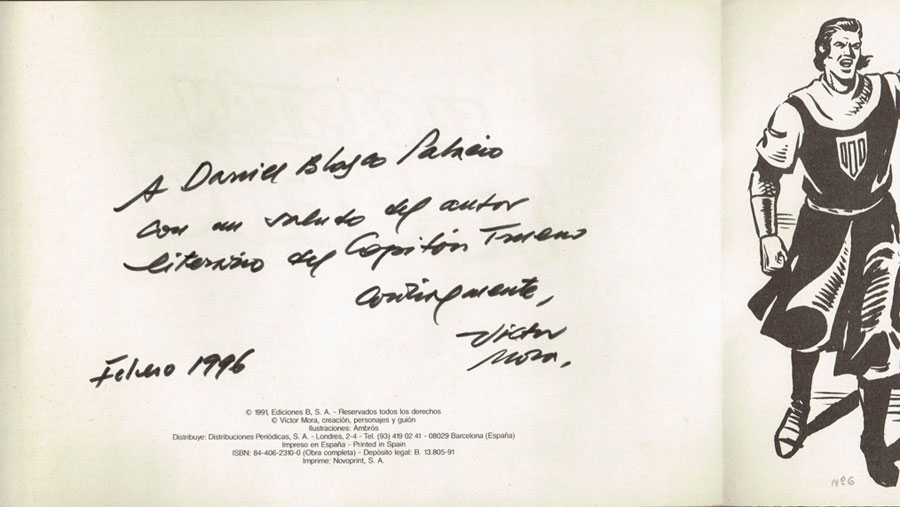 A Daniel Blasco Palacio
con un saludo del autor
literario del Capitán Trueno
cordialmente,
Víctor
Mora,
Febrero 1996
© 1991, Ediciones B, S. A. - Reservados todos los derechos
© Victor Mora, creación, personajes y guión
Ilustraciones: Ambrós
Distribuye: Distribuciones Periódicas, S. A. - Londres, 2-4 - Tel. (93) 419 02 41 - 08029 Barcelona (España)
Impreso en España - Printed in Spain
ISBN: 84-406-2310-0 (Obra completa) - Depósito legal: B. 13.805-91
Imprime: Novoprint, S. A.
Nº6